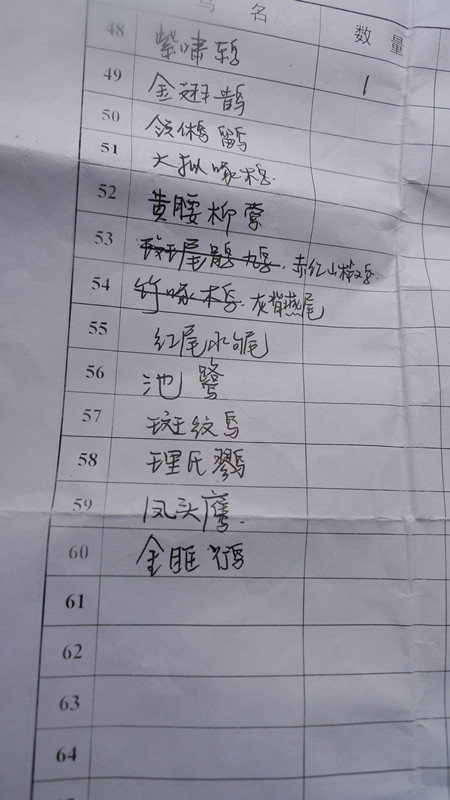 鸟 名 数 量
48 紫啸鸫
49 金翅鹊 1
50 领鸺鹠
51 大拟啄木鸟.
52 黄腰柳莺
53 斑尾鹃鸠. 赤红山椒鸟
54 竹啄木鸟. 灰背燕尾
55 红尾水鸲
56 池鹭
57 斑纹鸟
58 理氏鹨
59 凤头鹰.
60 金眶鸻
61
62
63
64